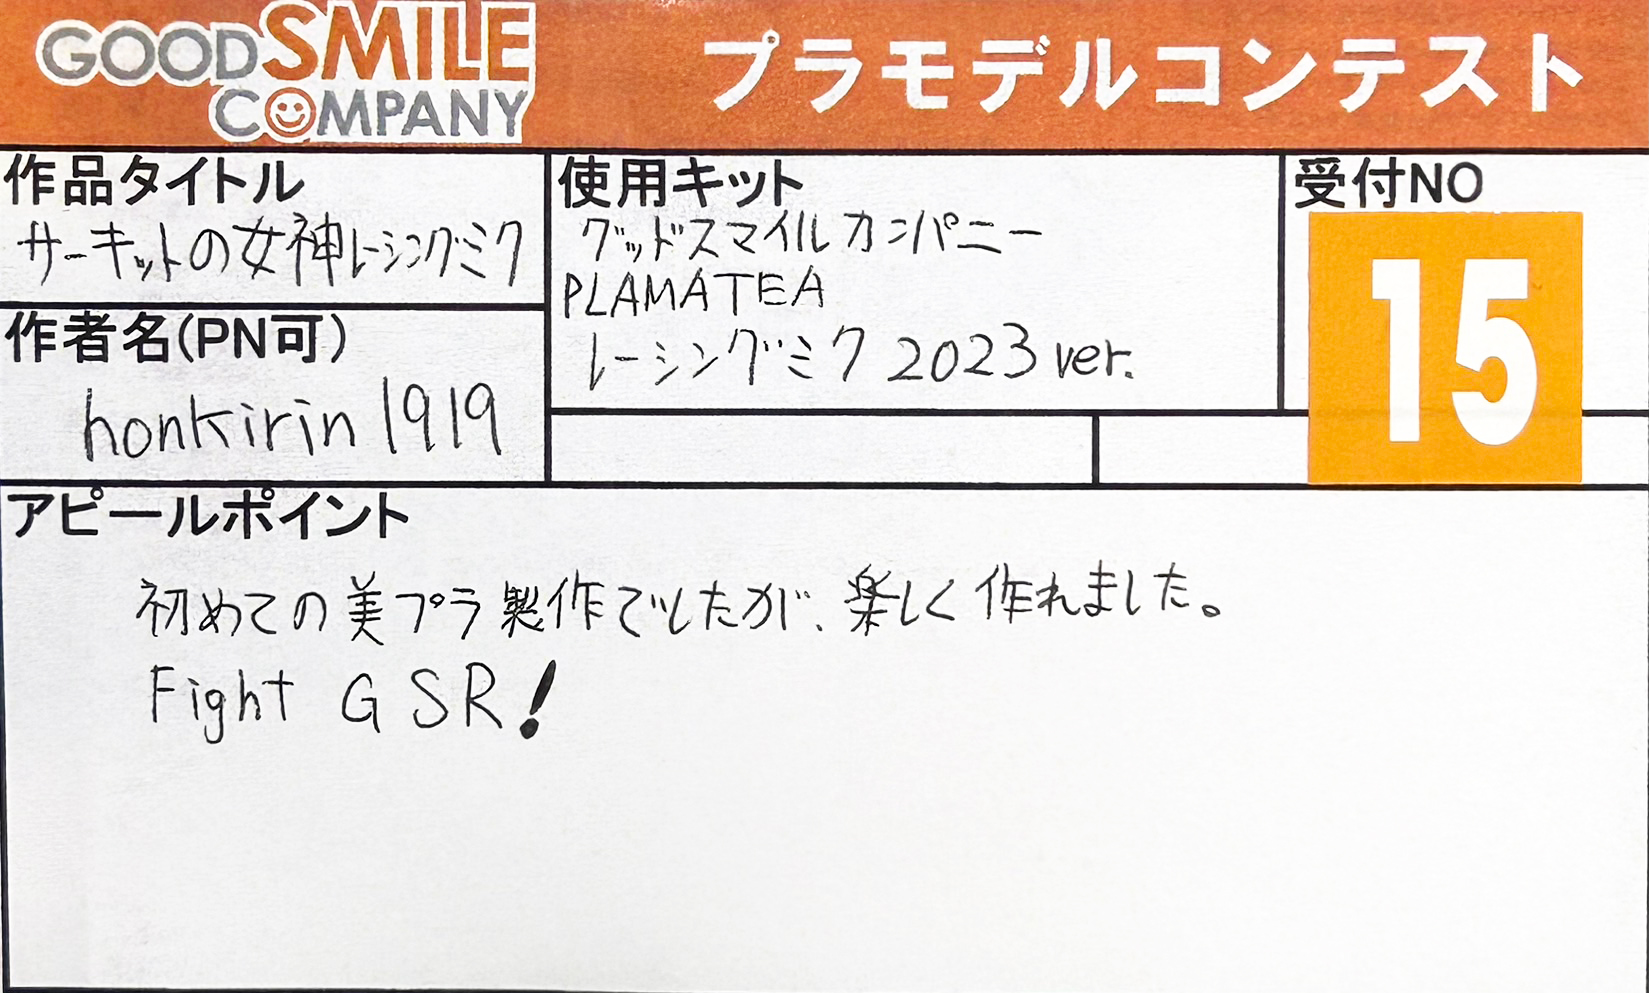 GOOD SMILE
COMPANY
プラモデルコンテスト
作品タイトル
サーキットの女神レーシングミク
使用キット
グッドスマイルカンパニー
PLAMATEA
レーシングミク 2023 ver.
受付NO
15
作者名(PN可)
honkirin1919
アピールポイント
初めての美プラ製作でしたが、楽しく作れました。
Fight GSR!